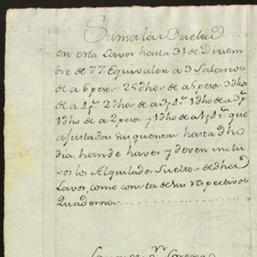 Suma la
en esta Lavor hasta 31 de Diciem
bre de 77 Equivalen a 3 Salarios
de a 6 pesos 2 dhos de a 5 pesos 3 dhos
de a 4 ps 2 dhos de a 3 ps 1 dho de a
1 dho de a 2 pesos y 1 dho de a 1 que
ajustadas sus quentas hasta dho
dia, han de haver y deven inclu
los Alquilados Sueltos de dha
Lavor, como consta de sus respectivos
Quadernos